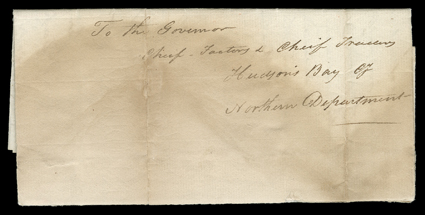 To the Governor
Chief Factors & Chief Traders
Hudson's Bay Cy
Northern Department